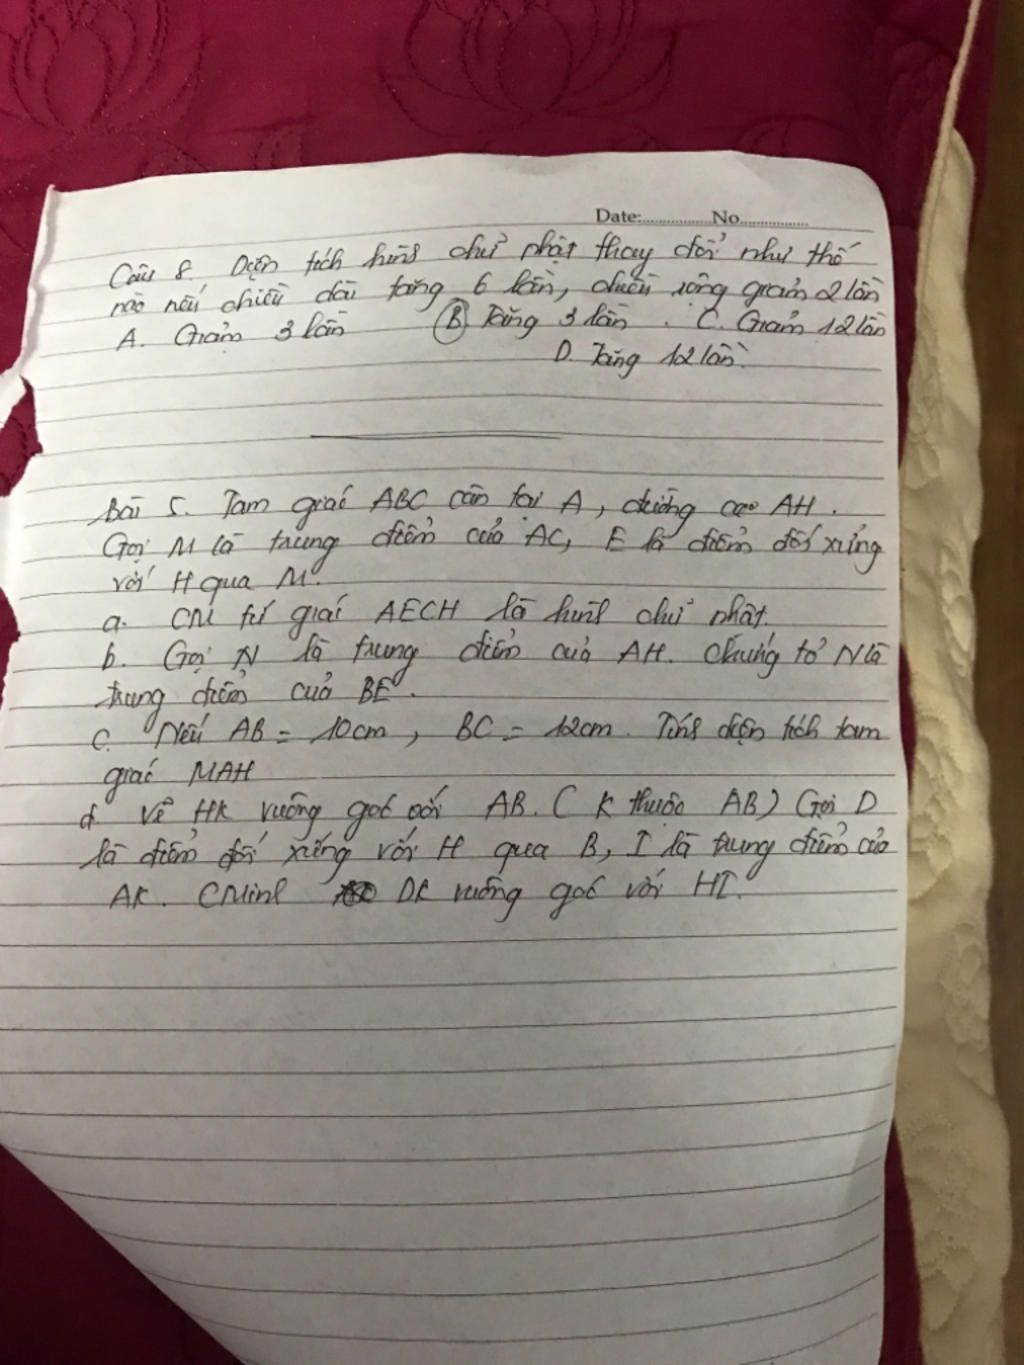 Date:...............No...............
Câu 8. Diện tích hình chữ nhật thay đổi như thế
nào nếu chiều dài tăng 6 lần, chiều rộng giảm 2 lần
A. Giảm 3 lần B. Tăng 3 lần. C. Giảm 12 lần
D. Tăng 12 lần.
Bài 5. Tam giác ABC cân tại A, đường cao AH.
Gọi M là trung điểm của AC, E là điểm đối xứng
với H qua M.
a. CM tứ giác AECH là hình chữ nhật.
b. Gọi N là trung điểm của AH. Chứng tỏ N là
trung điểm của BE.
c. Nếu AB = 10cm, BC = 12cm. Tính diện tích tam
giác MAH
d. Vẽ HK vuông góc với AB. (K thuộc AB) Gọi D
là điểm đối xứng với H qua B, I là trung điểm của
AK. CMinh DK vuông góc với HI.